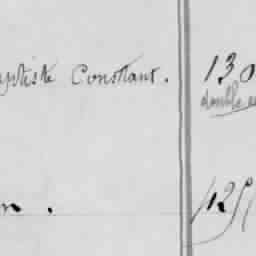 aptiste Constant. 130
double
n. 125